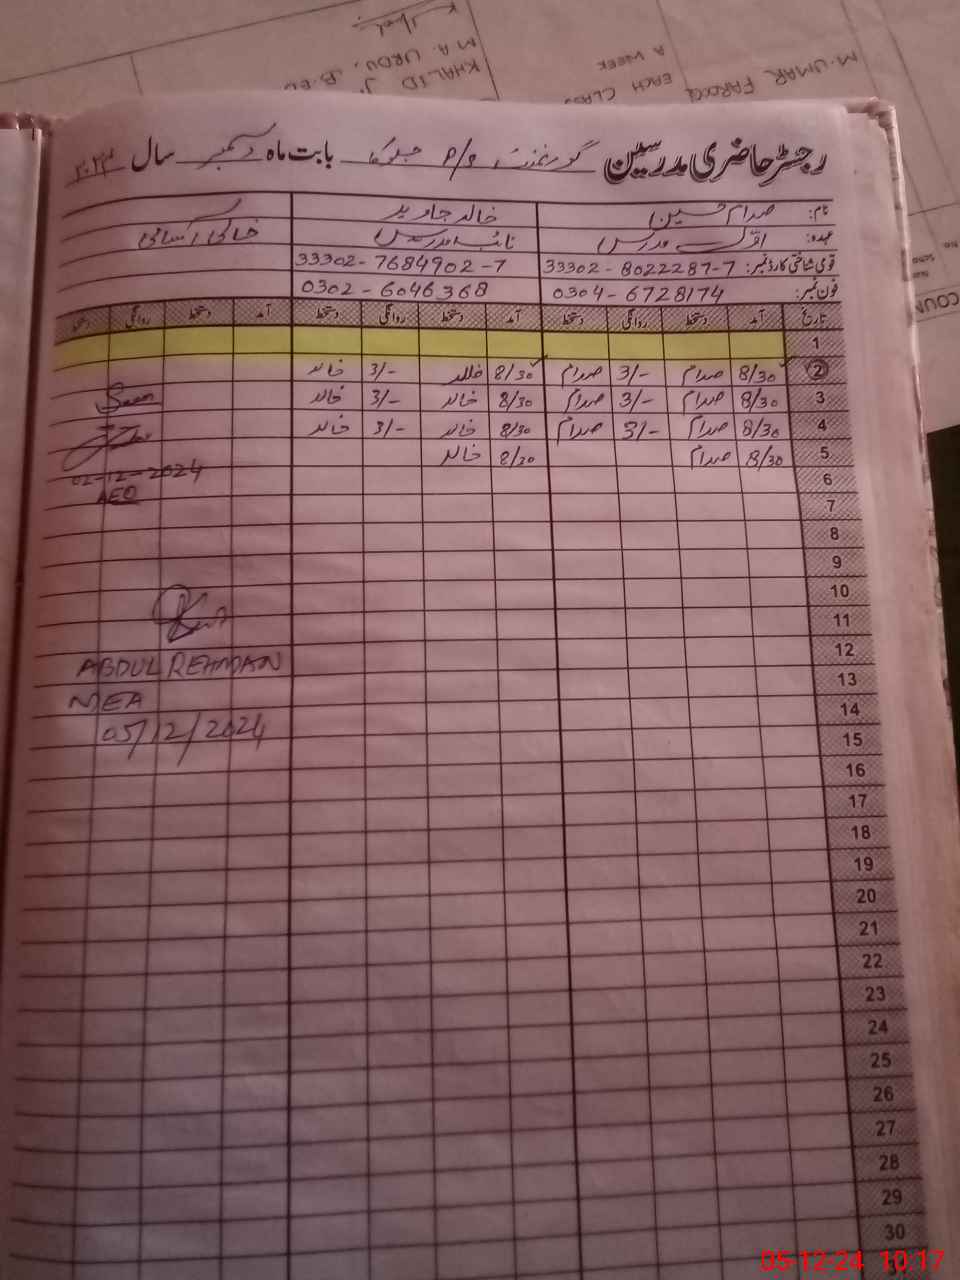 رجسٹر حاضری مدرسین گورنمنٹ P/S بابت ماہ دسمبر سال ۲۰۲۴
نام: صدام حسین خالد جاوید
عہدہ: اوّل مدرس نائب مدرس خالی آسامی
قومی شناختی کارڈ نمبر: 33302-8022287-7 33302-7684902-7
فون نمبر: 0304-6728174 0302-6046368
تاریخ آمد دستخط روانگی دستخط آمد دستخط روانگی دستخط آمد دستخط روانگی دستخط
1
2 8/30 صدام 3/- صدام 8/30 خالد 3/- خالد
3 8/30 صدام 3/- صدام 8/30 خالد 3/- خالد
4 8/30 صدام 3/- صدام 8/30 خالد 3/- خالد
5 8/30 صدام 8/30 خالد
02-12-2024
6
AEO
7
8
9
10
11
12
ABDUL REHMAN
13
MEA
14
05/12/2024
15
16
17
18
19
20
21
22
23
24
25
26
27
28
29
30
M. UMAR FAROOQ
EACH CLASS
A WEEK
KHALID J
M.A. URDU, B.ED
COUN
05-12-24 10:17